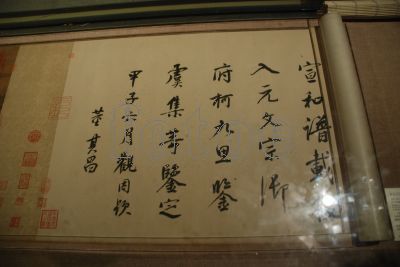 宣和譜載
入元文宗御
府柯九思鑒
虞集等鑒定
甲子六月觀因題
董其昌